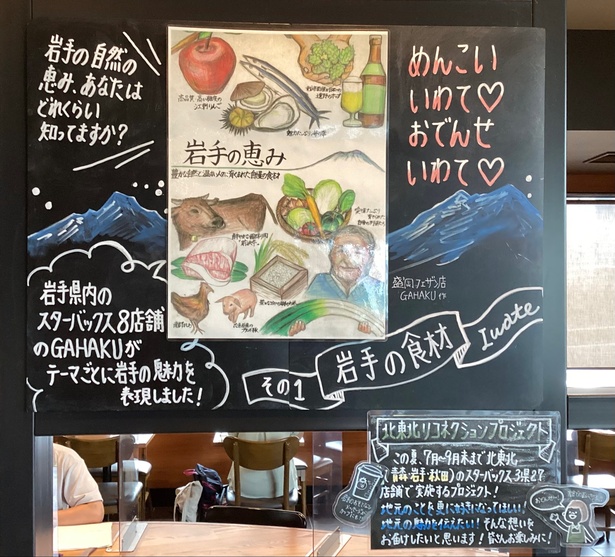 岩手の自然の
恵み、あなたは
どれくらい
知ってますか?
岩手の恵み
豊かな自然と温かい人に育くまれた自慢の食材
めんこい
いわて♡
おでんせ
いわて♡
盛岡フェザン店
GAHAKU作
岩手県内の
スターバックス8店舗
のGAHAKUが
テーマごとに岩手の魅力を
表現しました!
その1
岩手の食材
Iwate
北東北リコネクションプロジェクト
この夏、7月〜9月末まで北東北
(青森・岩手・秋田)のスターバックス3県27
店舗で実施するプロジェクト!
地元のことを更に好きになってほしい!
地元の魅力を伝えたい! そんな想いを
お届けしたいと思います! 皆さんお楽しみに!